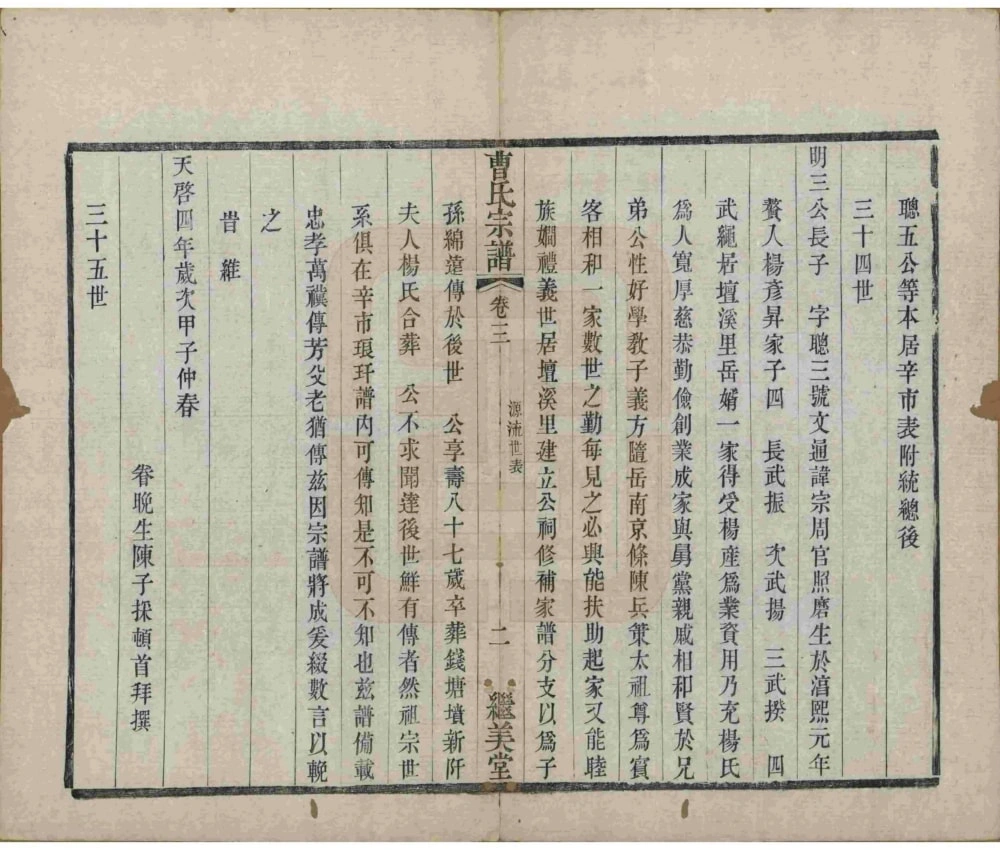 聰五公等本居辛市表附統總後
三十四世
明三公長子　字聰三號文通諱宗周官照磨生於淳熙元年
贅入楊彥昇家子四　長武振　次武揚　三武揆　四
武繩居壇溪里岳婿一家得受楊產爲業資用乃充楊氏
爲人寬厚慈恭勤儉創業成家與舅黨親戚相和賢於兄
弟公性好學教子義方隨岳南京條陳兵策太祖尊爲賓
客相和一家數世之勤每見之必與能扶助起家又能睦
族嫻禮義世居壇溪里建立公祠修補家譜分支以爲子
曹氏宗譜　卷三　源流世表　二　繼美堂
孫綿薳傳於後世　公享壽八十七歲卒葬錢塘墳新阡
夫人楊氏合葬　公不求聞達後世鮮有傳者然祖宗世
系俱在辛市琅玕譜內可傳知是不可不知也茲譜備載
忠孝萬禩傳芳父老猶傳茲因宗譜將成爰綴數言以輓
之
旹維
天啓四年歲次甲子仲春
眷晚生陳子採頓首拜撰
三十五世